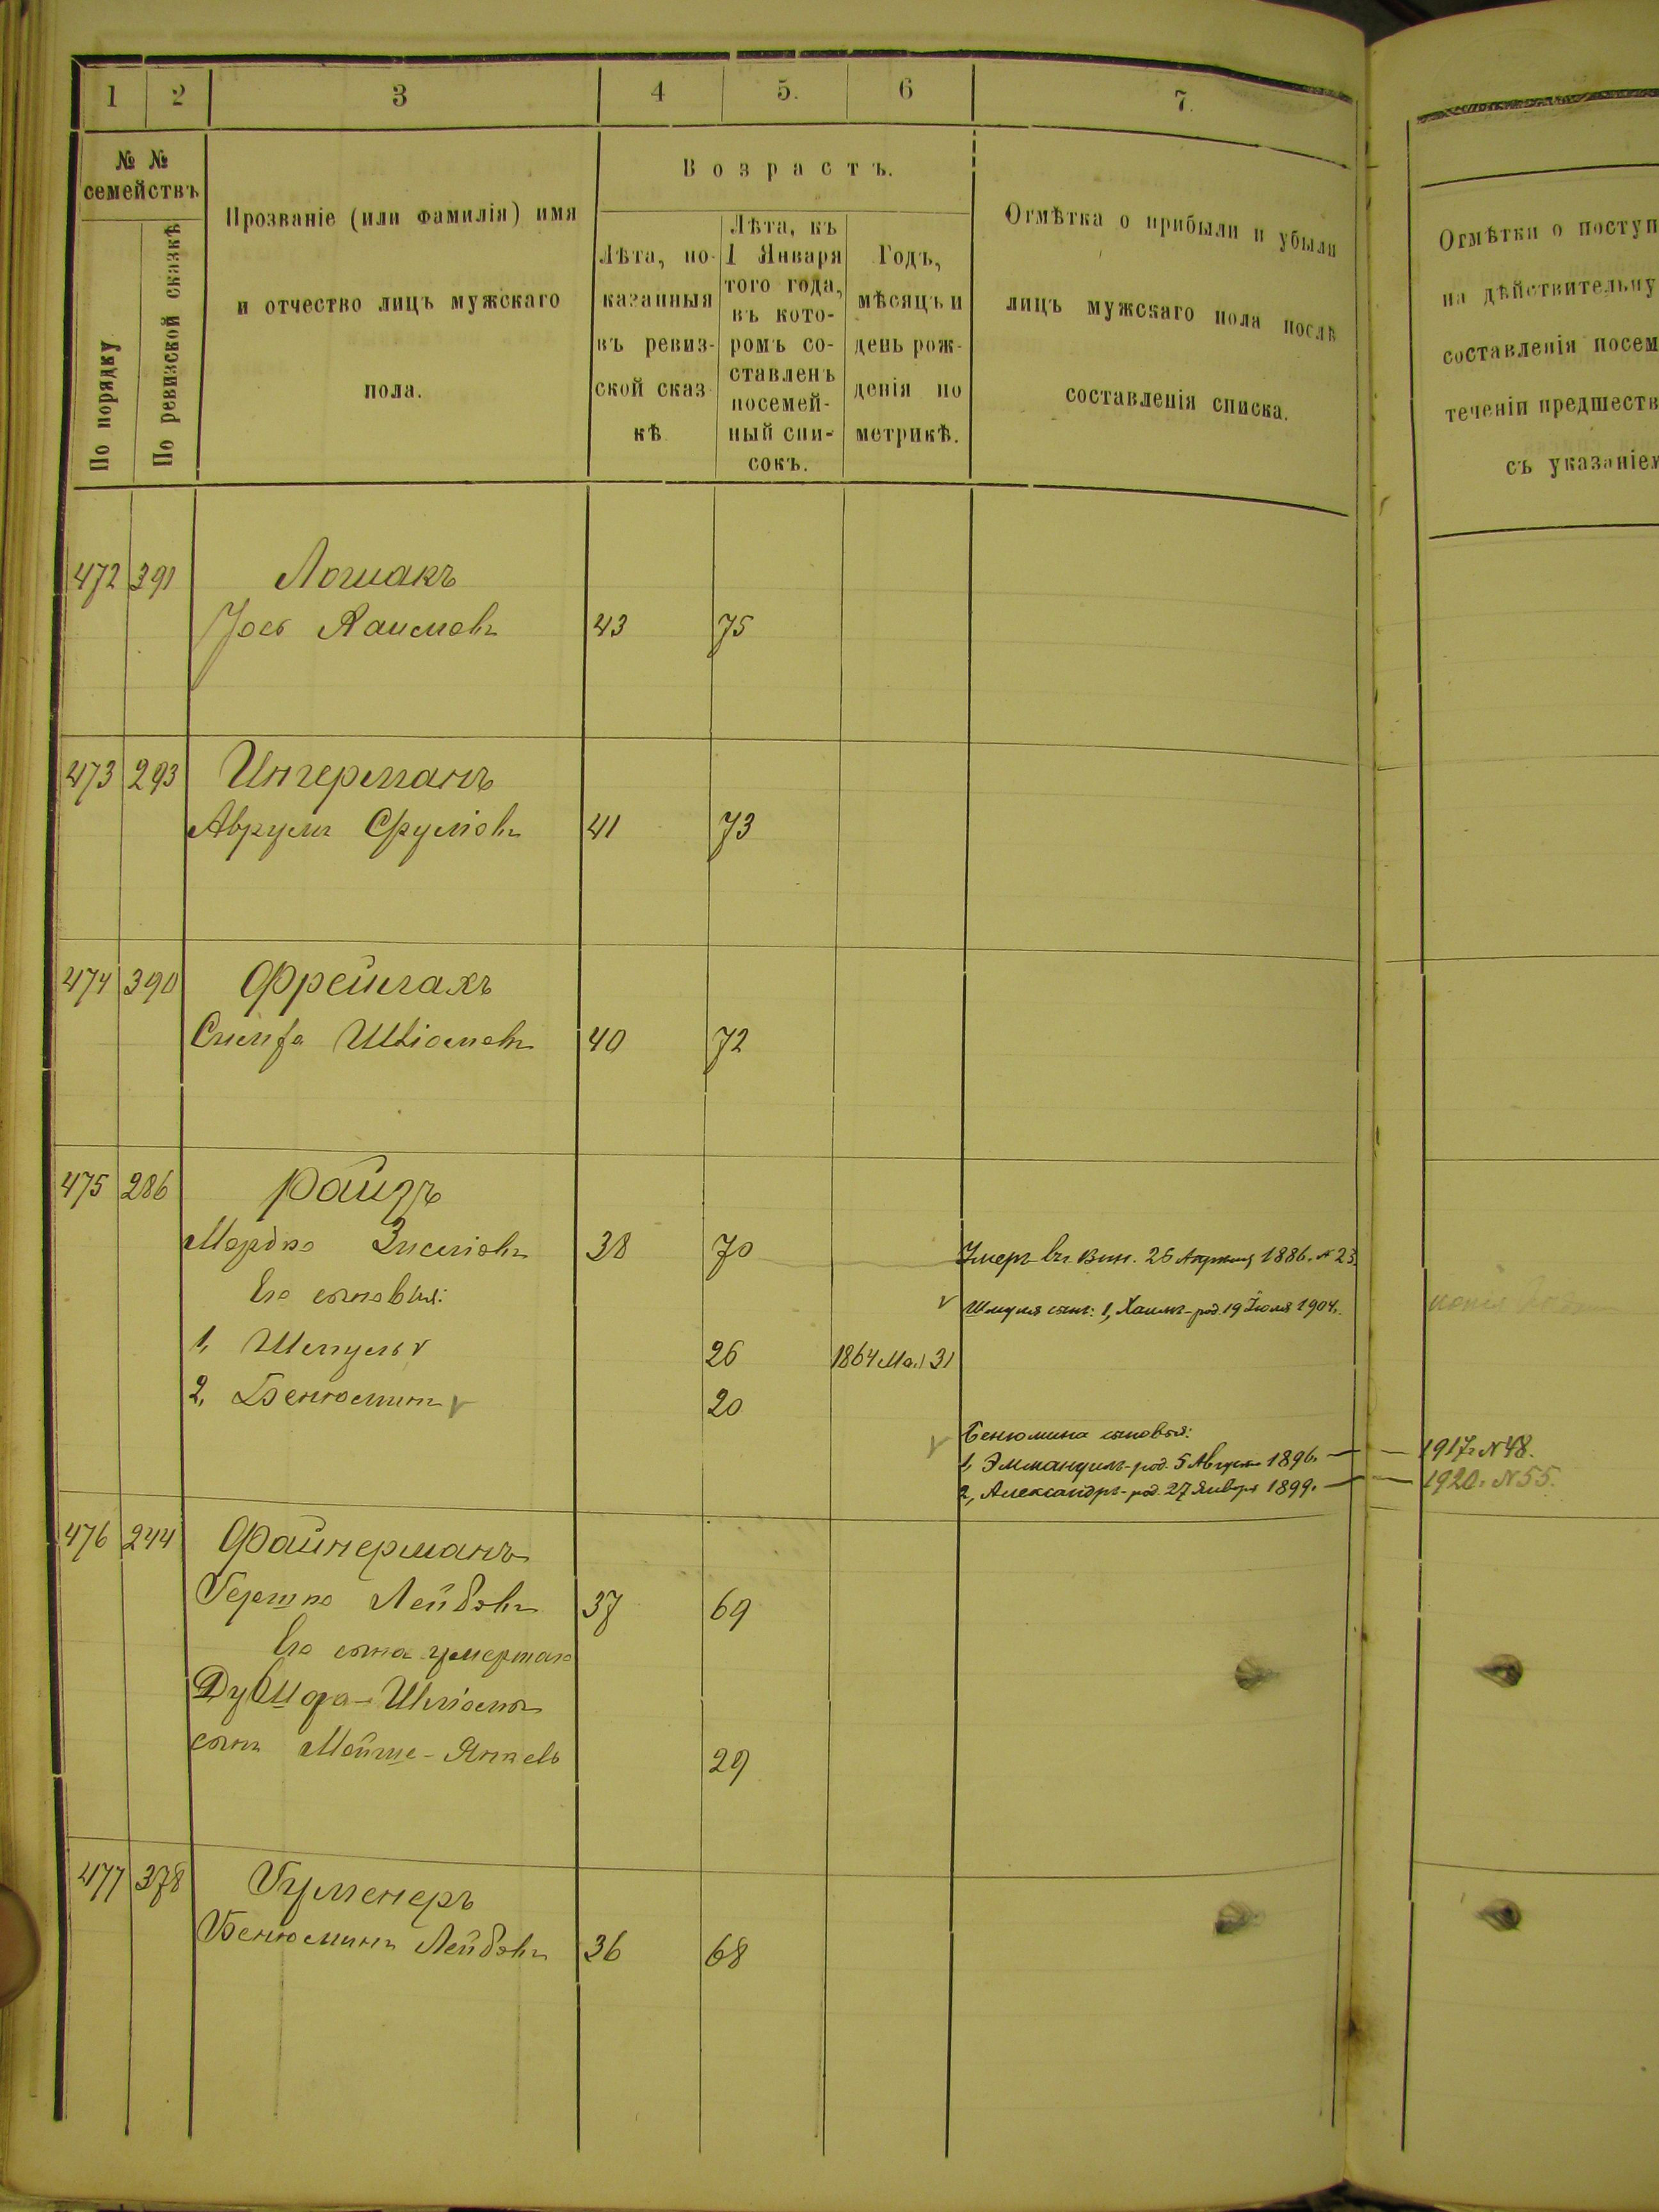 1 2 3 4 5. 6 7.
№ №
семействъ
По порядку
По ревизской сказкѣ
Прозваніе (или фамилія) имя
и отчество лицъ мужскаго
пола.
Возрастъ.
Лѣта, по-
казанныя
въ ревиз-
ской сказ-
кѣ
Лѣта, къ
1 Января
того года,
въ кото-
ромъ со-
ставленъ
посемей-
ный спи-
сокъ.
Годъ,
мѣсяцъ и
день рож-
денія по
метрикѣ.
Отмѣтка о прибыли и убыли
лицъ мужскаго пола послѣ
составленія списка.
Отмѣтки о поступ
на дѣйствительну
составленія посем
теченіи предшеств
съ указаніем
472 391 Лошакъ
Іось Хаимовъ 43 75
473 293 Ингерманъ
Аврумъ Сруліовъ 41 73
474 390
40 72
475 286 Райзъ
Мордко Зисліовъ 38 70 Умеръ въ Вин. 26 Апрѣля 1886. № 23.
Его сыновья:
Шмуля сынъ: 1, Хаимъ - род. 19 Іюля 1904.
1, Шмуль 26 1864 Ма. 31
2, Бенюминъ 20
Бенюмина сыновья:
1, Эммануилъ - род. 5 Августа 1896. — 1917 г. № 48.
2, Александръ - род. 27 Января 1899. — 1920 г. № 55.
476 244 Файнерманъ
Гершко Лейбовъ 37 69
Его сына умершаго
Шліома
сынъ Мойше-Янкель 29
477 378 Гурменеръ
Бенюминъ Лейбовъ 36 68